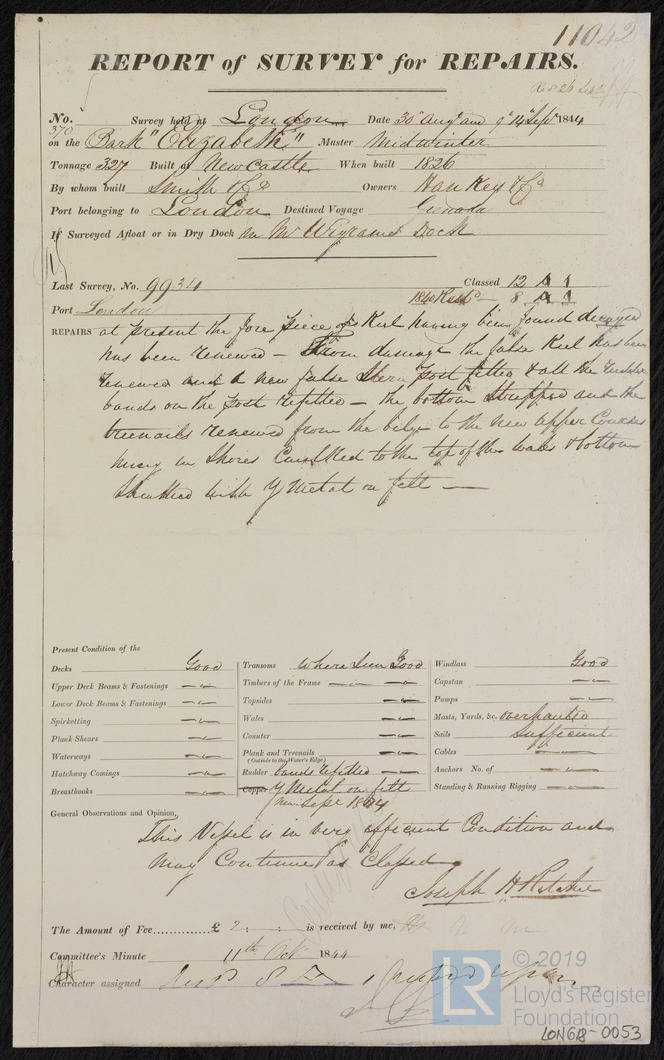 11042
REPORT of SURVEY for REPAIRS.
No. 370 Survey held at London Date 30 Augt and 9 14 Septr 1844
on the Bark "Elizabeth" Master Midwinter
Tonnage 327 Built at New Castle When built 1826
By whom built Smith & Co Owners Hankey & Co
Port belonging to London Destined Voyage
If Surveyed Afloat or in Dry Dock in Mr Wigrams Dock
Last Survey, No. 9934 Classed 12 A 1
Port London 1840 Restd 8 A 1
REPAIRS at present the fore piece of Keel having been found decayed
has been renewed – From damage the false Keel has been
renewed and a new false Stern post fitted & all the Rudder
bands on the post refitted – the bottom Stripped and the
treenails renewed from the bilge to the new upper Courses
in Shores Caulked to the top of the wales & bottom
Sheathed with Y Metal on felt —
Present Condition of the
Decks Good
Upper Deck Beams & Fastenings
Lower Deck Beams & Fastenings
Spirketting
Plank Shears
Waterways
Hatchway Comings
Breasthooks
Transoms Where Seen Good
Timbers of the Frame
Topsides
Wales
Counter
Plank and Treenails
(Outside to the Water's Edge)
Rudder bands refitted
Copper Y Metal on felt
new Sept 1844
Windlass Good
Capstan
Pumps
Masts, Yards, &c. overhauled
Sails Sufficient
Cables
Anchors No. of
Standing & Running Rigging
General Observations and Opinion,
This Vessel is in very efficient Condition and
may Continue as Classed
Joseph H
The Amount of Fee £ 2 is received by me,
Committee's Minute 11th Oct 1844
Character assigned
© 2019
LR
Lloyd's Register
Foundation
LON618-0053